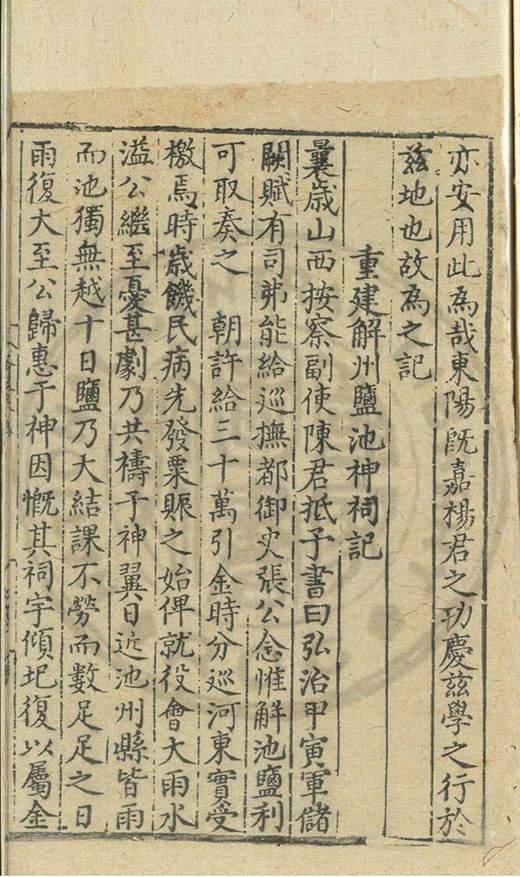 亦安用此爲哉東陽旣嘉楊君之功慶兹學之行於
兹地也故爲之記
重建解州鹽池神祠記
曩歲山西按察副使陳君抵予書曰弘治甲寅軍儲
闕賦有司弗能給巡撫都御史張公念惟解池鹽利
可取奏之 朝許給三十萬引金時分巡河東實受
檄焉時歲饑民病先發粟賑之始俾就役會大雨水
溢公繼至憂甚劇乃共禱于神翼日近池州縣皆雨
而池獨無越十日鹽乃大結課不勞而數足足之日
雨復大至公歸惠于神因慨其祠宇傾圮復以屬金